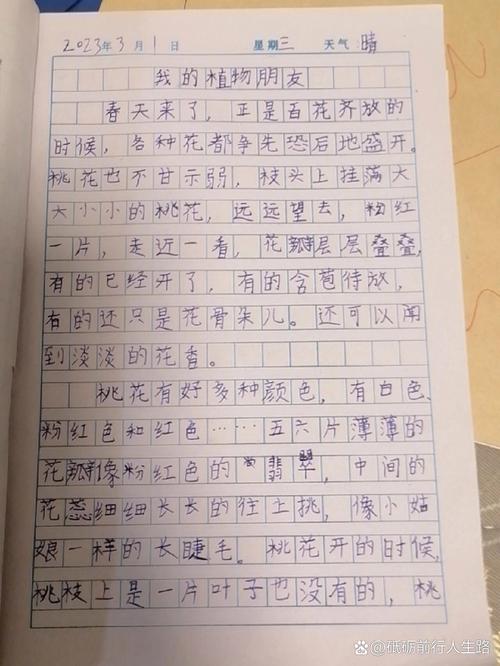 2023年3月1日 星期三 天气:晴
我的植物朋友
春天来了，正是百花齐放的
时候，各种花都争先恐后地盛开。
桃花也不甘示弱，枝头上挂满大
大小小的桃花，远远望去，粉红
一片，走近一看，花瓣层层叠叠，
有的已经开了，有的含苞待放，
有的还只是花骨朵儿。还可以闻
到淡淡的花香。
桃花有好多种颜色，有白色、
粉红色和红色……五六片薄薄的
花瓣像粉红色的翡翠，中间的
花蕊细细长长的往上挑，像小姑
娘一样的长睫毛。桃花开的时候，
桃枝上是一片叶子也没有的，桃
@砥砺前行人生路